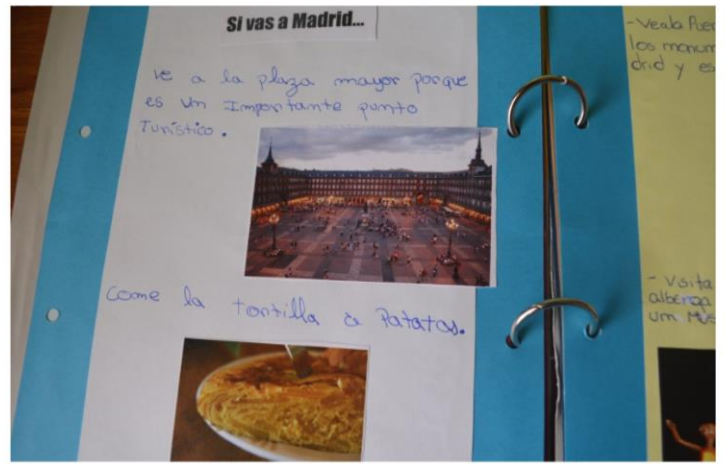 Si vas a Madrid...
ve a la plaza mayor porque
es un Importante punto
Turístico.
Come la tortilla a Patatas.
- Veala
los monum
drid y es
- Visita
alberga
um